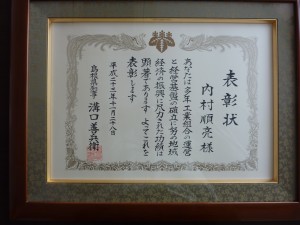 表彰状
内村順亮様
あなたは多年工業組合の運営
と経営基盤の確立に努め地域
経済の振興に尽力された功績は
顕著であります よってこれを
表彰します
平成二十三年十一月二十八日
島根県知事 溝口善兵衛